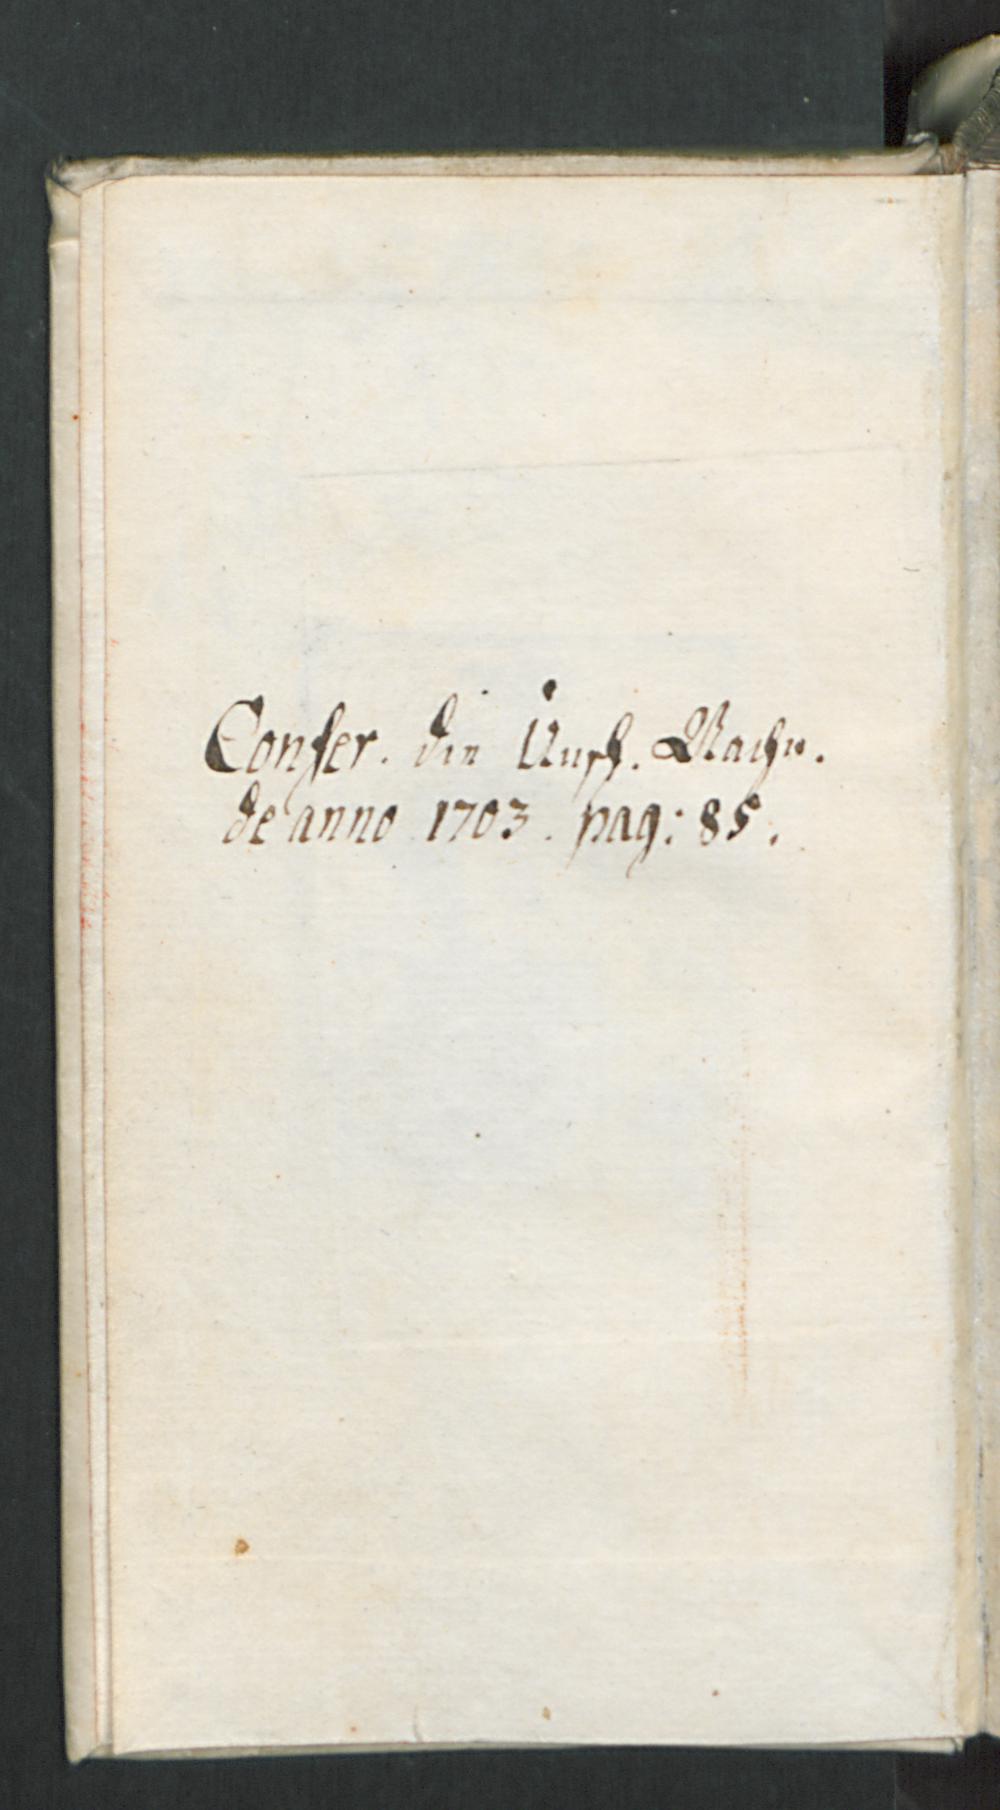 Confer. die Unsch. Nachr.
de anno 1703. pag: 85.